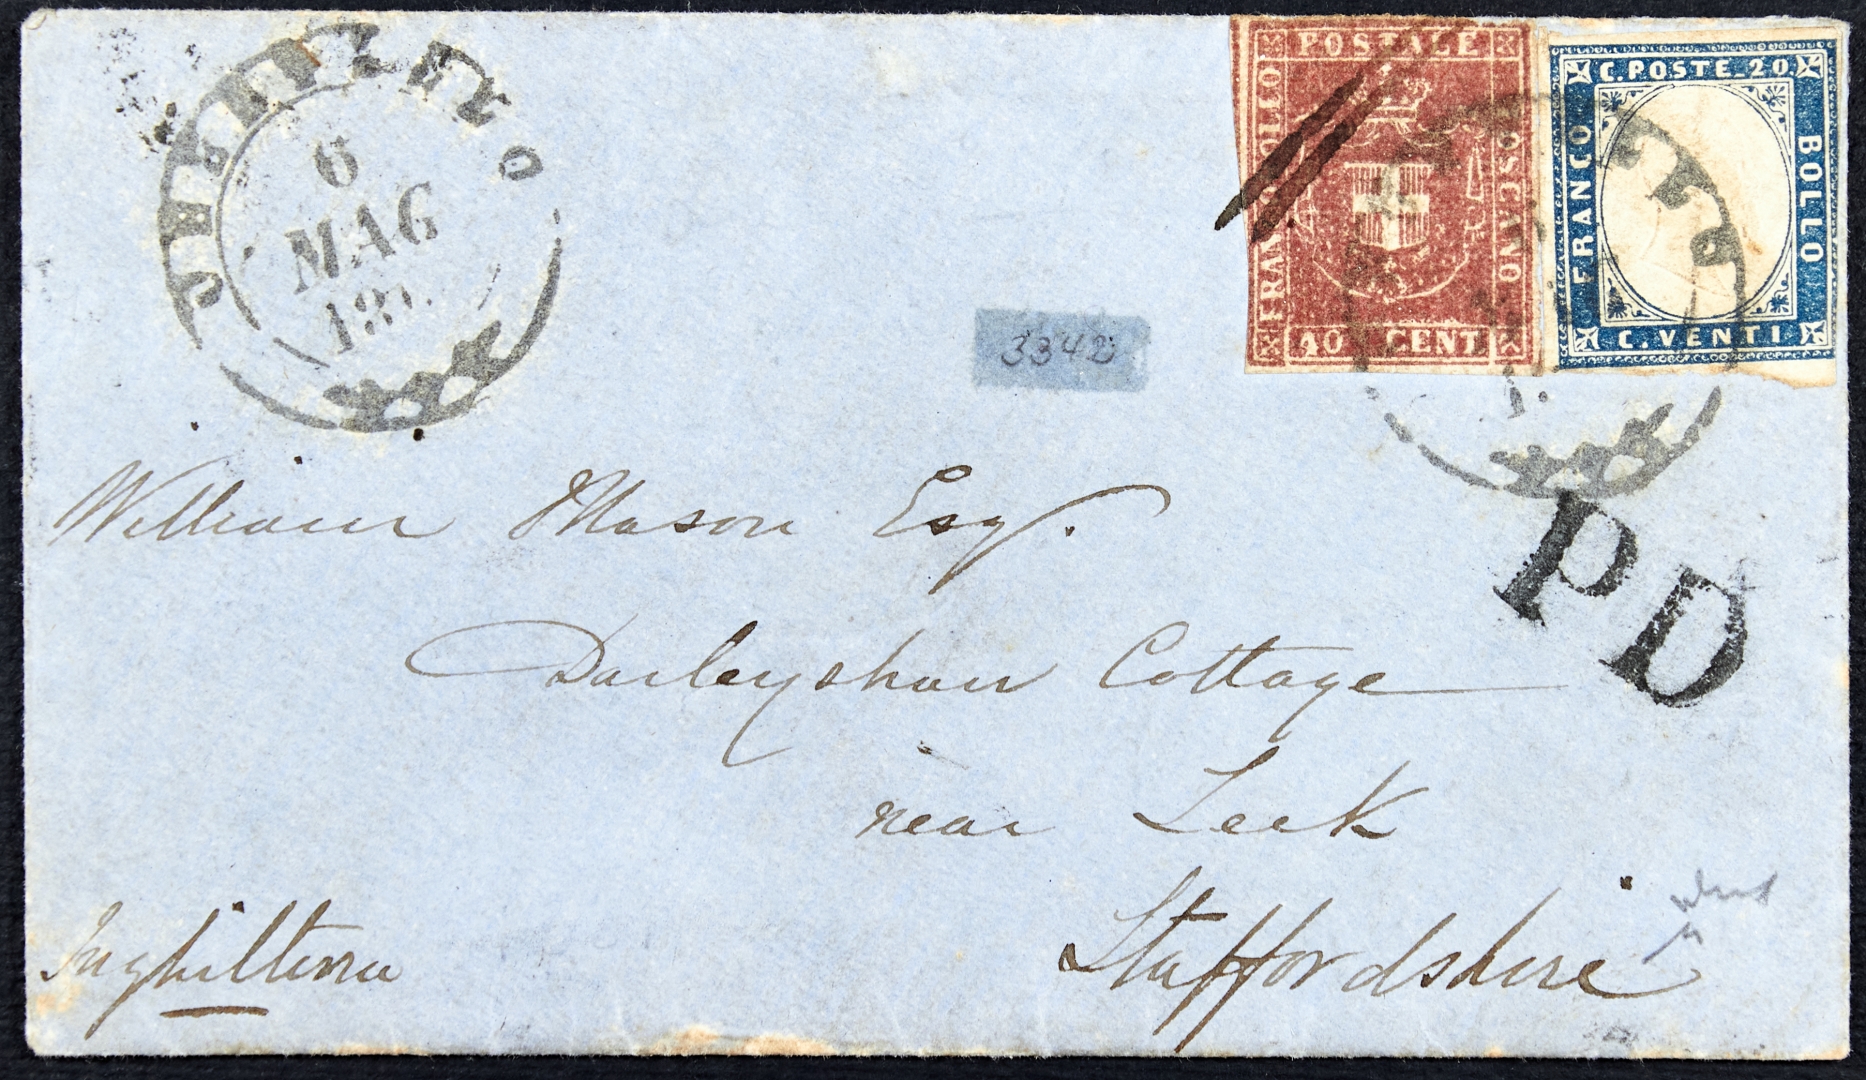 6
MAG
FRANCOBOLLO
POSTALE
TOSCANO
40 CENT
C. POSTE_20.
FRANCO
BOLLO
C. VENTI.
3342
PD
William Mason Esq.
Darleyshaw Cottage
near Leek
Staffordshire
Inghilterra